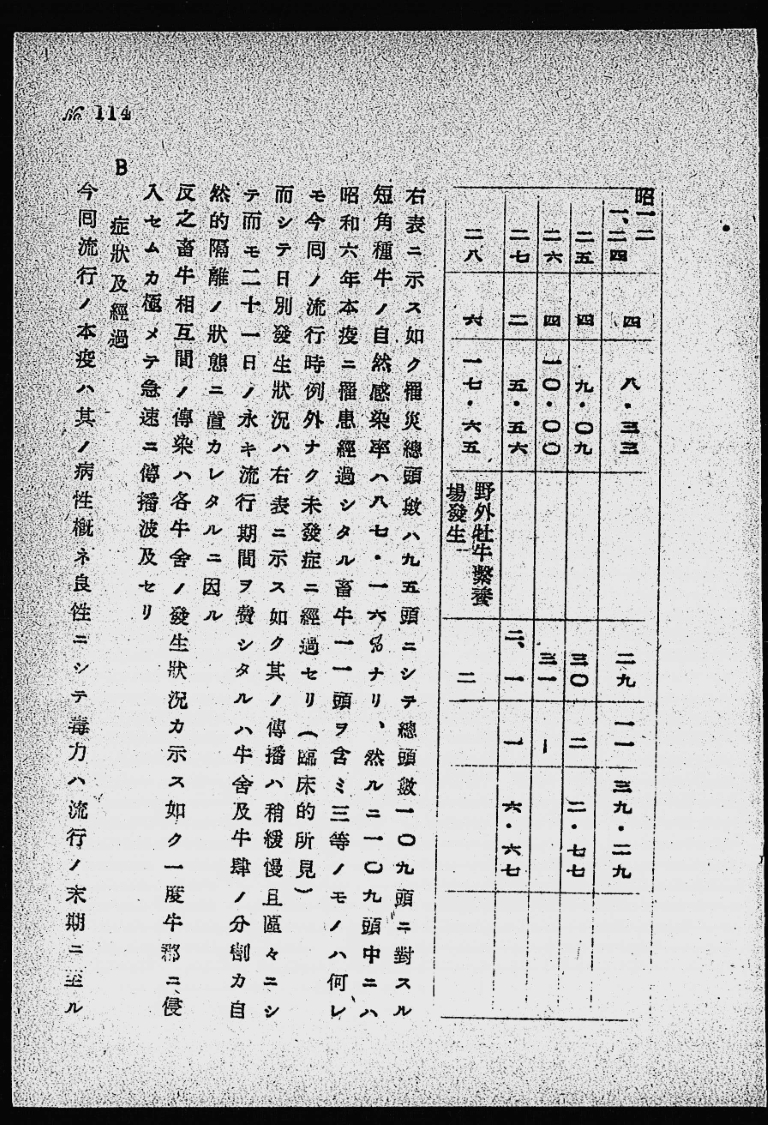 № 114
昭一二
一、二四 四 八・三三 二九 一一 三九・二九
二五 四 九・〇九 三〇 二 二・七七
二六 四 一〇・〇〇 三一 ー
二七 二 五・五六 二、一 一 六・六七
二八 六 一七・六五 野外牡牛繫養 二
場發生
右表ニ示ス如ク罹災總頭數ハ九五頭ニシテ總頭數一〇九頭ニ對スル
短角種牛ノ自然感染率ハ八七・一六%ナリ、然ルニ一〇九頭中ニハ
昭和六年本疫ニ罹患經過シタル畜牛一一頭ヲ含ミ三等ノモノハ何レ
モ今囘ノ流行時例外ナク未發症ニ經過セリ(臨床的所見)
而シテ日別發生狀況ハ右表ニ示ス如ク其ノ傳播ハ稍緩慢且區々ニシ
テ而モ二十一日ノ永キ流行期間ヲ費シタルハ牛舍及牛肆ノ分割カ自
然的隔離ノ狀態ニ置カレタルニ因ル
反之畜牛相互間ノ傳染ハ各牛舍ノ發生狀況カ示ス如ク一度牛郡ニ侵
入セムカ極メテ急速ニ傳播波及セリ
B 症狀及經過
今囘流行ノ本疫ハ其ノ病性槪ネ良性ニシテ毒力ハ流行ノ末期ニ至ル